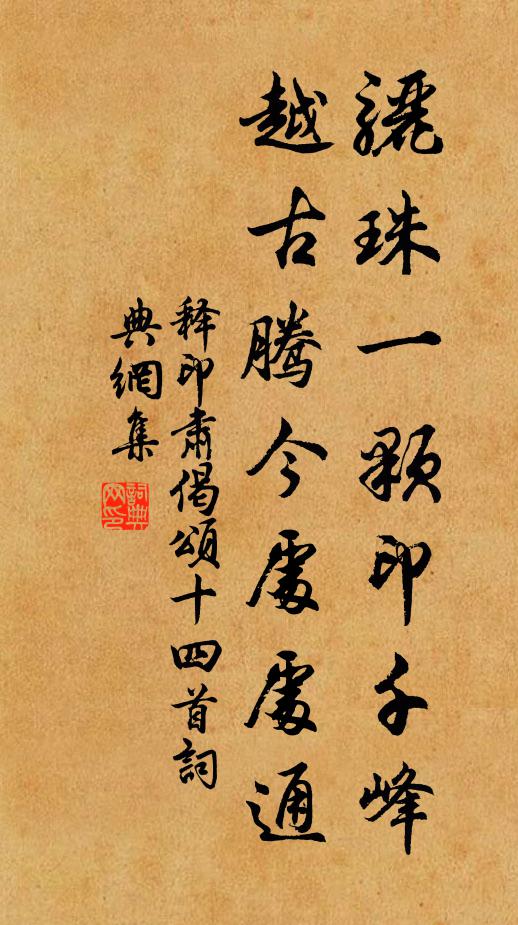 驪珠一顆印千峰
越古騰今處處通
釋印肅偈頌十四首詞
典網集
詞典
网印